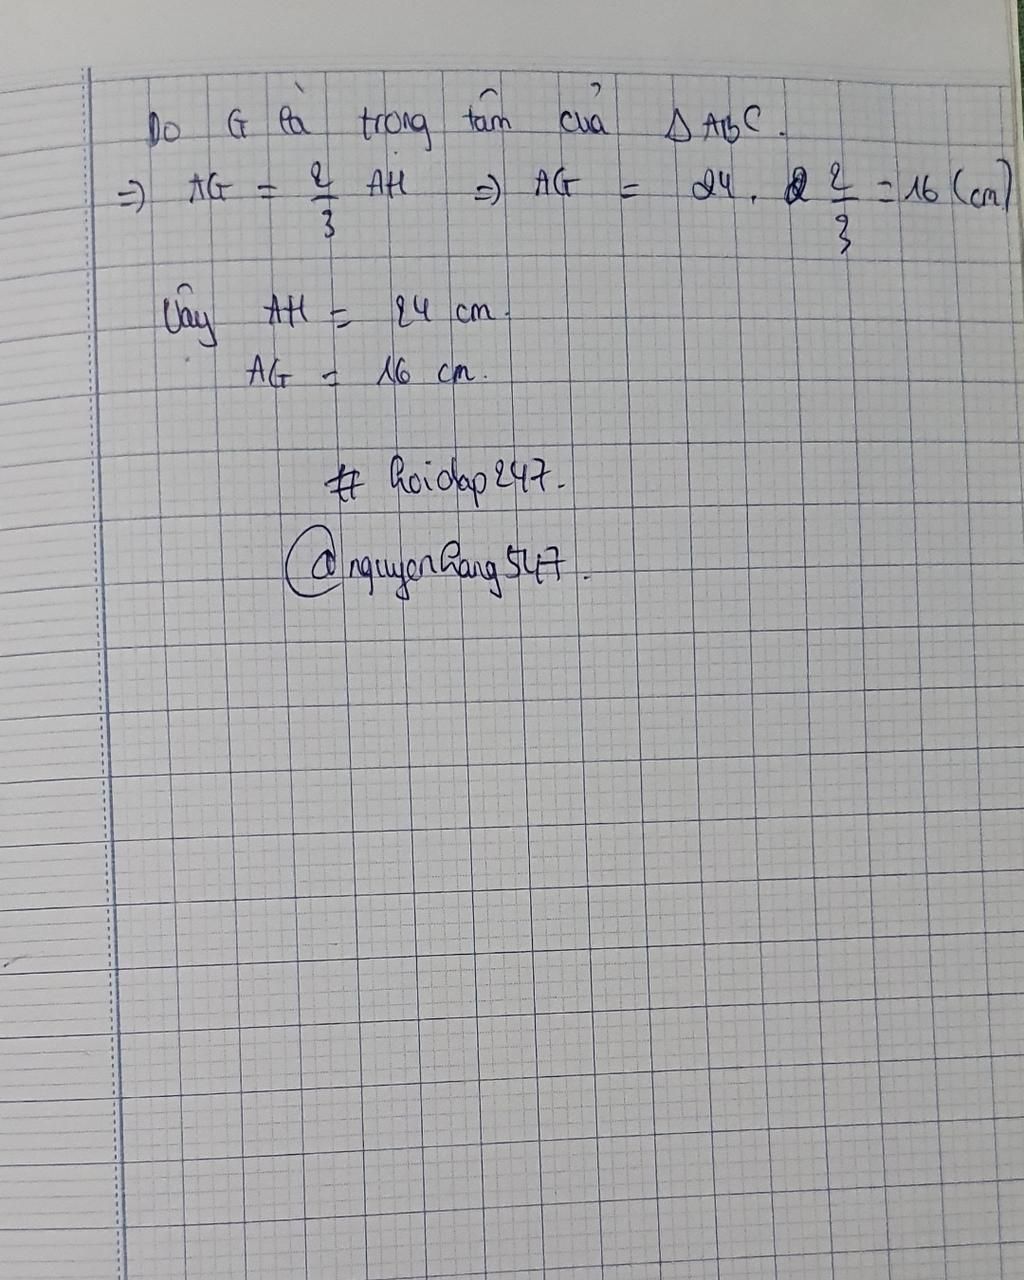 Do G là trọng tâm của Δ ABC.
=> AG = 2/3 AH => AG = 24 . 2/3 = 16 (cm)
Vậy AH = 24 cm.
AG = 16 cm.
# hoidap247.
@nguyenhang547.